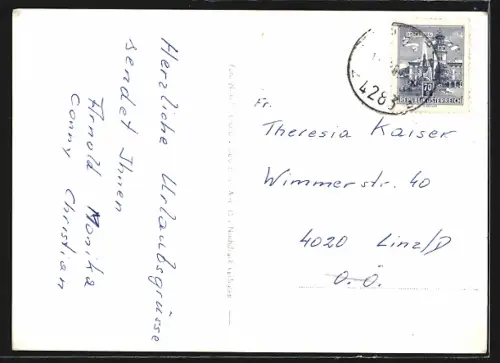 Herzliche Urlaubsgrüsse
sendet Ihnen
Arnold Monika
Conny Christian
Fr.
Theresia Kaiser
Wimmerstr. 40
4020 Linz/D
O.Ö.
70
REPUBLIK ÖSTERREICH
4283